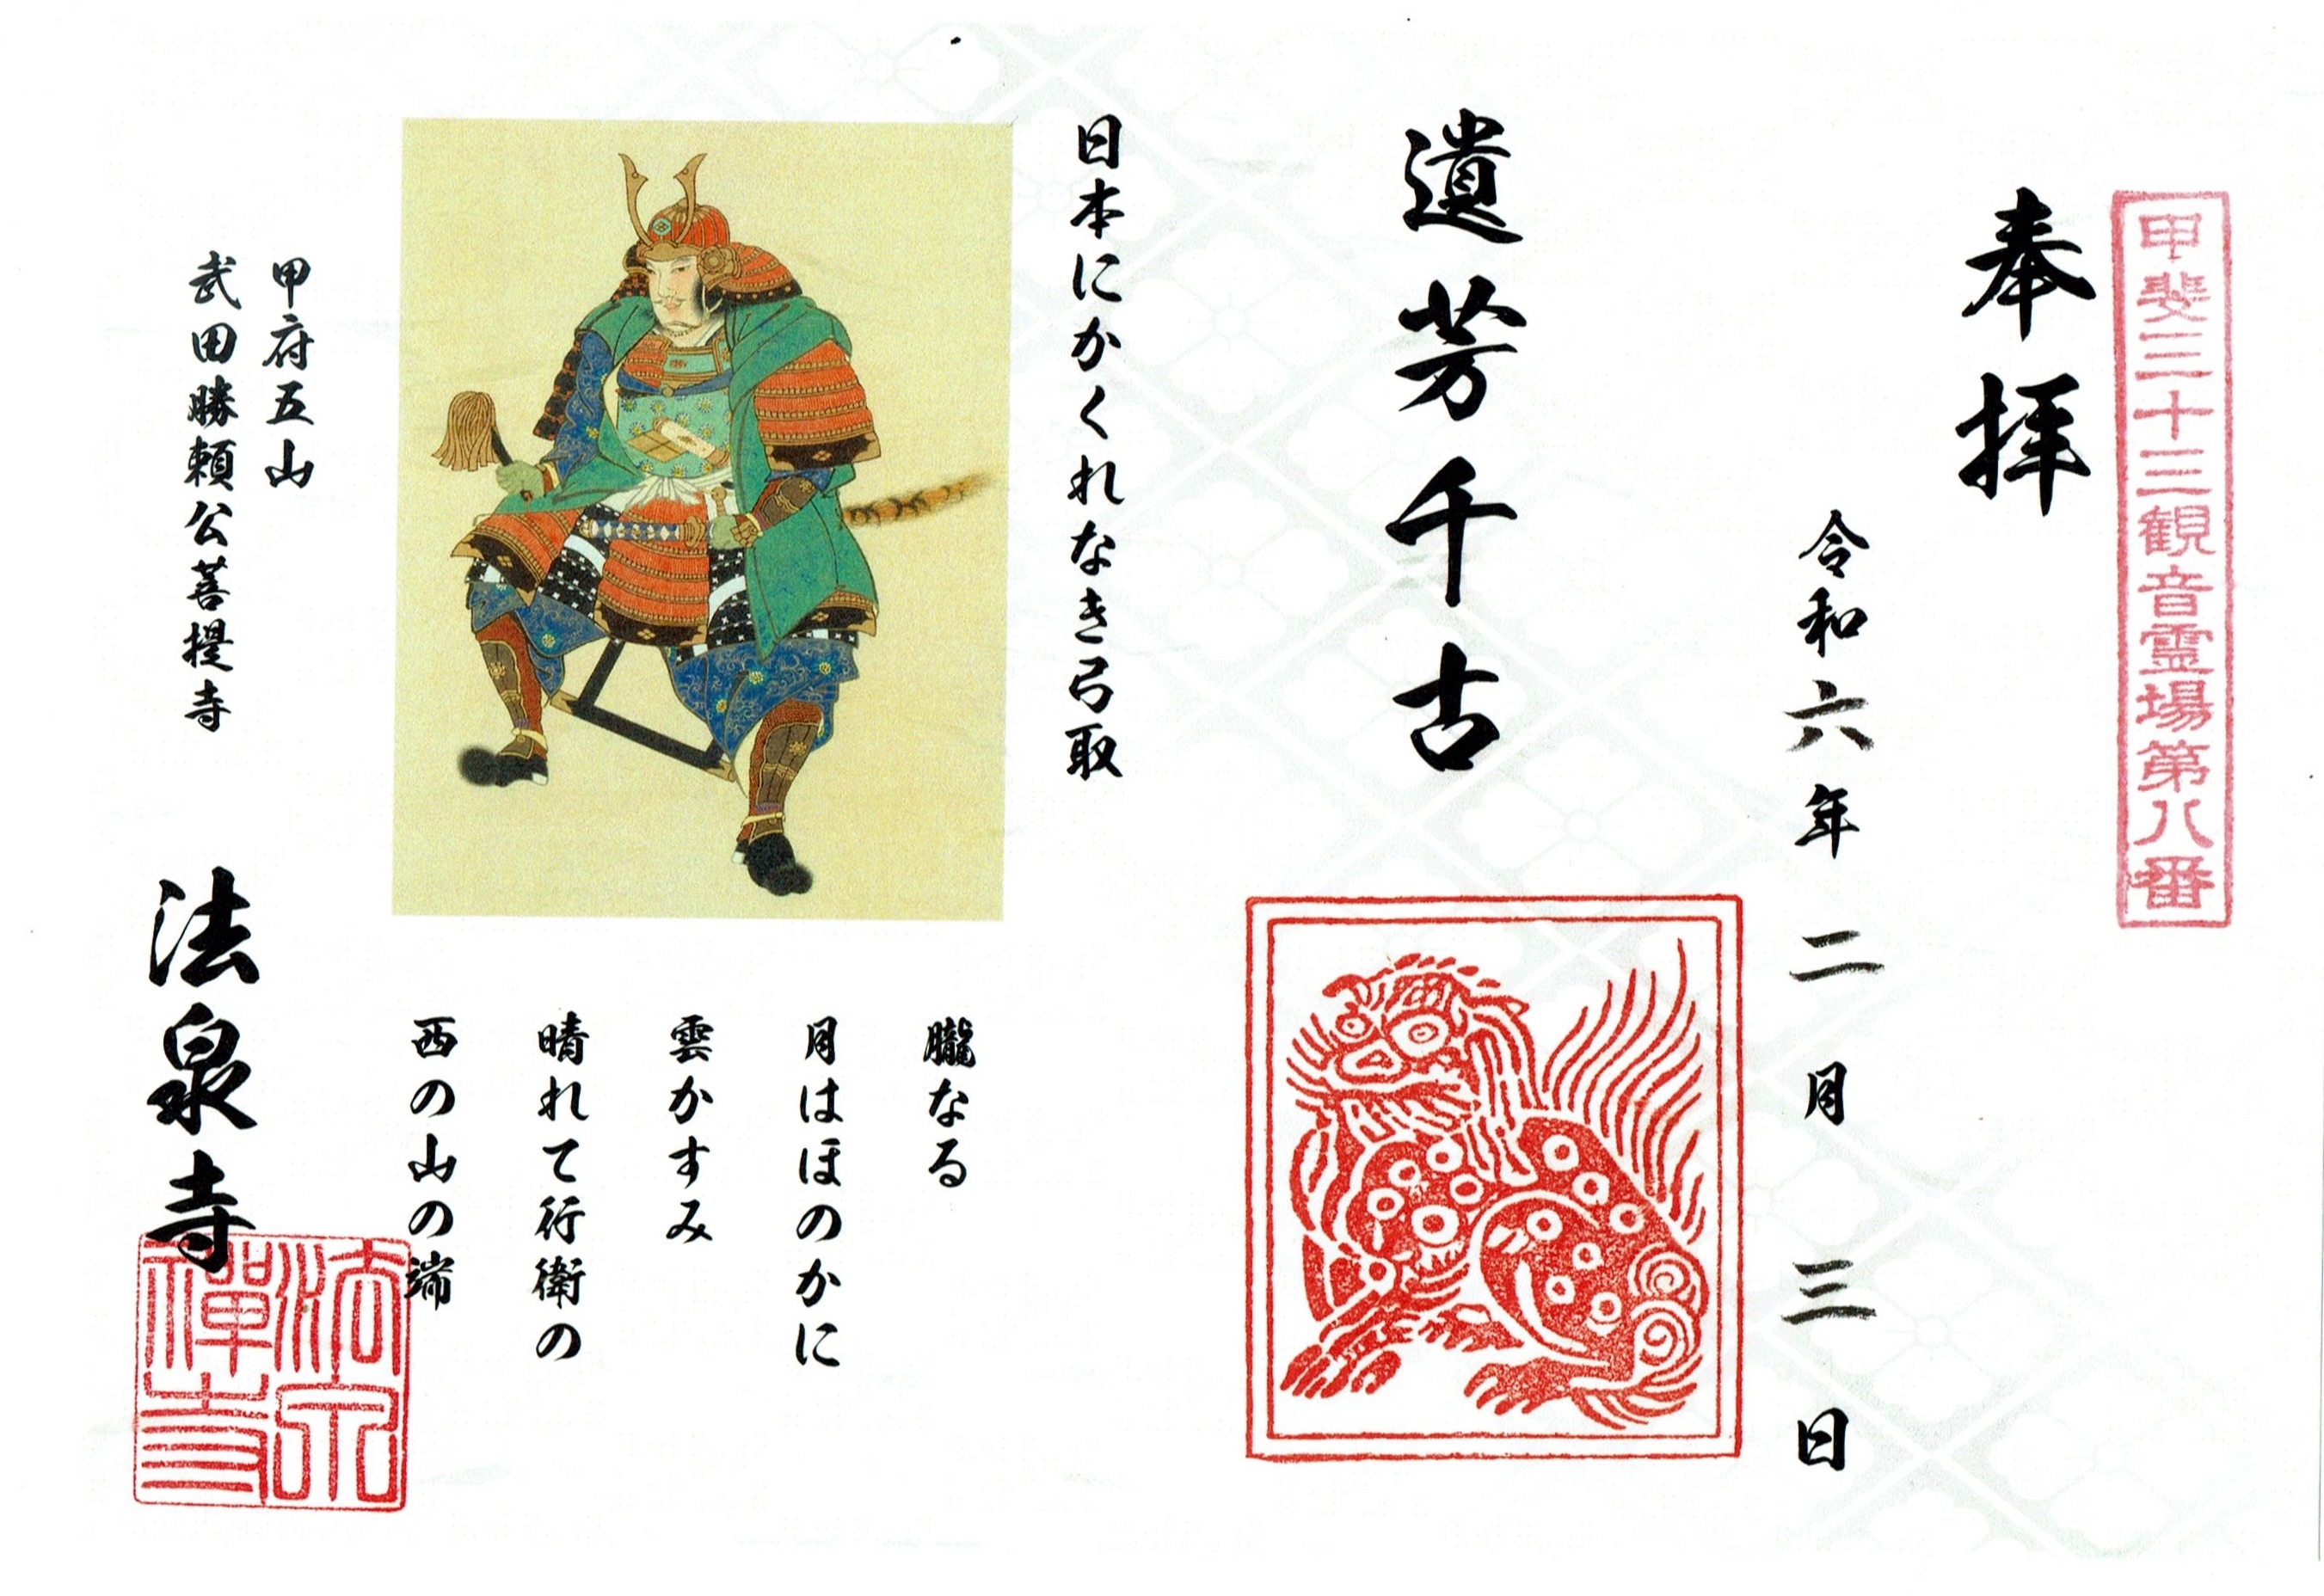 甲斐三十三観音霊場第八番
奉拝
令和六年二月三日
遺芳千古
日本にかくれなき弓取
朧なる
月はほのかに
雲かすみ
晴れて行衛の
西の山の端
甲府五山
武田勝頼公菩提寺
法泉寺
法泉禅寺